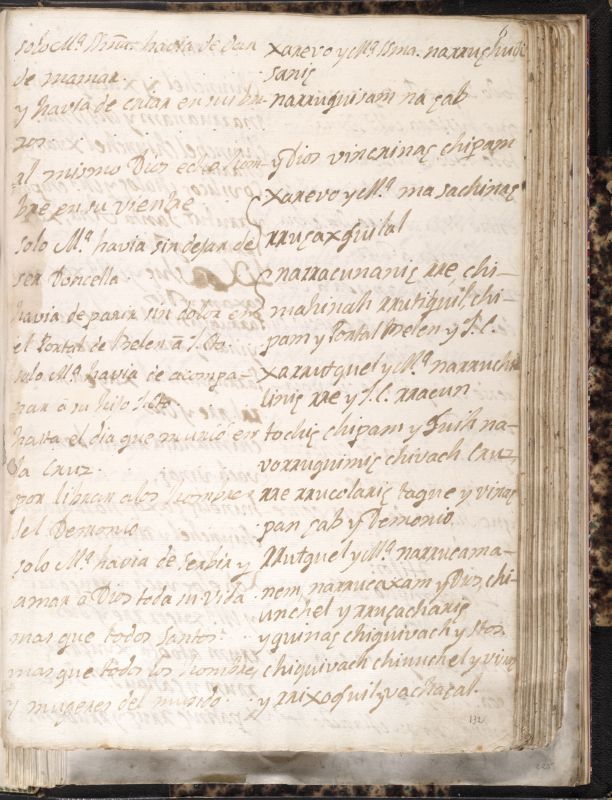 solo Mª Dña. havia de dar
de mamar.
y havia de criar en su bra-
zos.
al mismo Dios echo hom-
bre en su vientre
solo Mª havia sin dejar de
ser Doncella
havia de parir sin dolor en
el Portal de Belen â J.Xto.
solo Mª havia de acompa-
ñar â su hijo J.Xto.
hasta el dia que murió en
la Cruz.
por librar a los hombres
del Demonio
solo Mª havia de serbir y
amar â Dios toda su vida
mas que todos Santos.
mas que todos los hombres
y mugeres del mundo.
xarevo y Mª narruchuti
sanic
narruquisam na çab
y Dios vincrinac chipam
xarevo y Mª ma sachinac
rruçaxoquilal
narracunanic rre, chi-
mahinah rrutiquil chi-
pam y Portal Belen y J.C.
xarrutquel y Mª narruchi
linic rre y J.C. rracun
tochic chipam y quih na-
vorruquimic chivach Cruz,
rre rrucolaric taque y vinac
pan çab y Demonio
Rrutquel y Mª narrucama-
nem, narrucaxam y Dios, chi-
unchel y rruçacharic
y quinac chiquivach y Stos.
chiquivach chinuchel y vinac
y rrixoquil y vachaçal.
132.
225